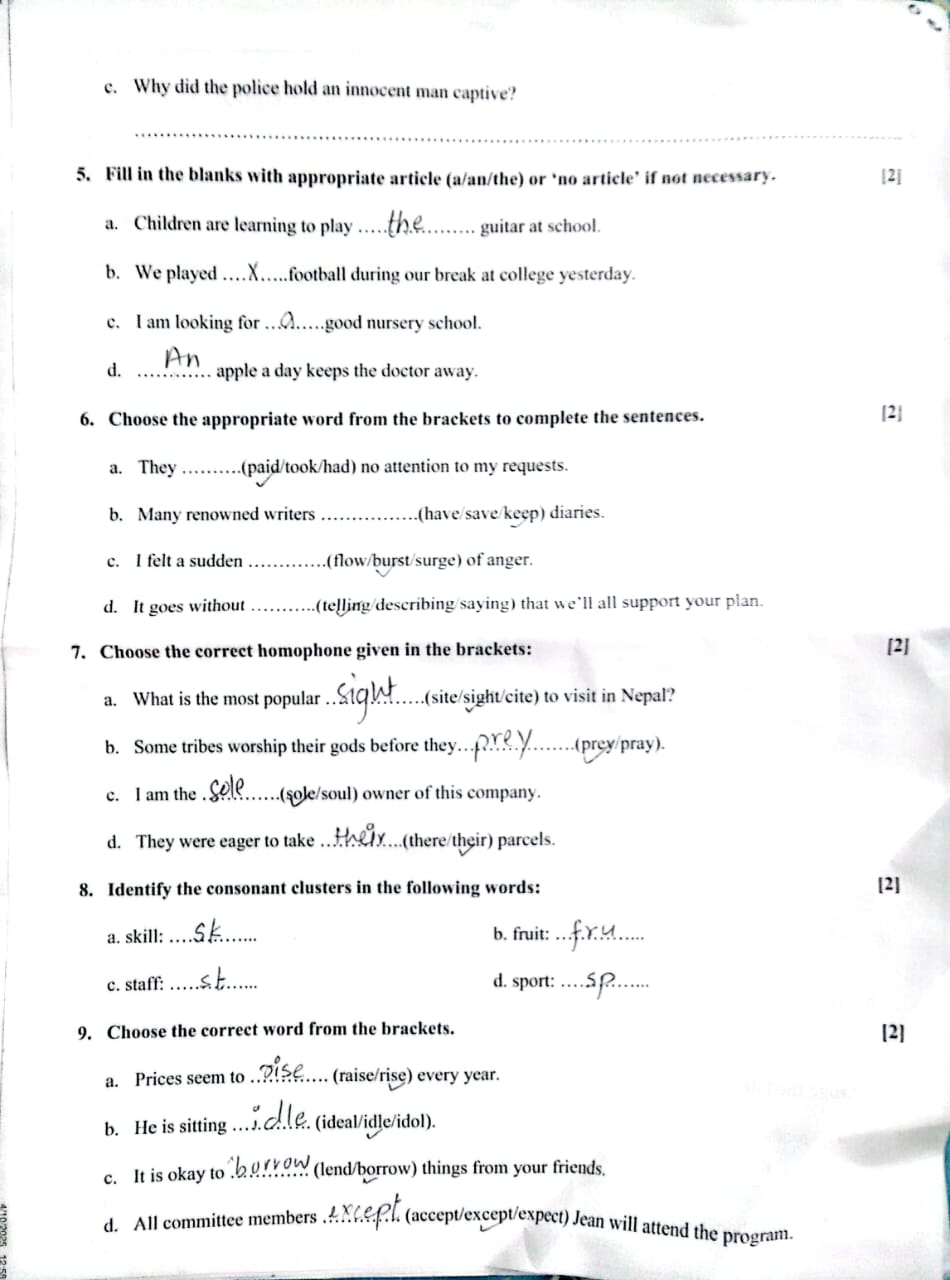 c. Why did the police hold an innocent man captive?
5. Fill in the blanks with appropriate article (a/an/the) or 'no article' if not necessary. [2]
a. Children are learning to play .....the......... guitar at school.
b. We played ....X.....football during our break at college yesterday.
c. I am looking for ...a.....good nursery school.
d. ....An.... apple a day keeps the doctor away.
6. Choose the appropriate word from the brackets to complete the sentences. [2]
a. They ..........(paid/took/had) no attention to my requests.
b. Many renowned writers ................(have/save/keep) diaries.
c. I felt a sudden .............(flow/burst/surge) of anger.
d. It goes without ...........(telling/describing/saying) that we'll all support your plan.
7. Choose the correct homophone given in the brackets: [2]
a. What is the most popular ..sight.....(site/sight/cite) to visit in Nepal?
b. Some tribes worship their gods before they...prey.......(prey/pray).
c. I am the .sole......(sole/soul) owner of this company.
d. They were eager to take ..their...(there/their) parcels.
8. Identify the consonant clusters in the following words: [2]
a. skill: ....sk....... b. fruit: ...fru.....
c. staff: .....st...... d. sport: ....sp.......
9. Choose the correct word from the brackets. [2]
a. Prices seem to ..rise.... (raise/rise) every year.
b. He is sitting ...idle. (ideal/idle/idol).
c. It is okay to .borrow (lend/borrow) things from your friends.
d. All committee members .except. (accept/except/expect) Jean will attend the program.
4/10/2025 12:58